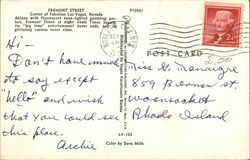 FREMONT STREET
Center of Fabulous Las Vegas, Nevada
Ablaze with fluorescent neon-lighted gambling
Fremont Street at night rivals Times Square
in "big time" entertainment never ends, and
glittering casinos never close.
P10561
POST CARD
Hi -
Don't have much
to say except
"hello" and wish
that you could see
this place.
Archie
Miss G. Manaigre
859 Bernon St.
Woonsocket
Rhode Island
2.00
LV-103
Color by Dave Mills